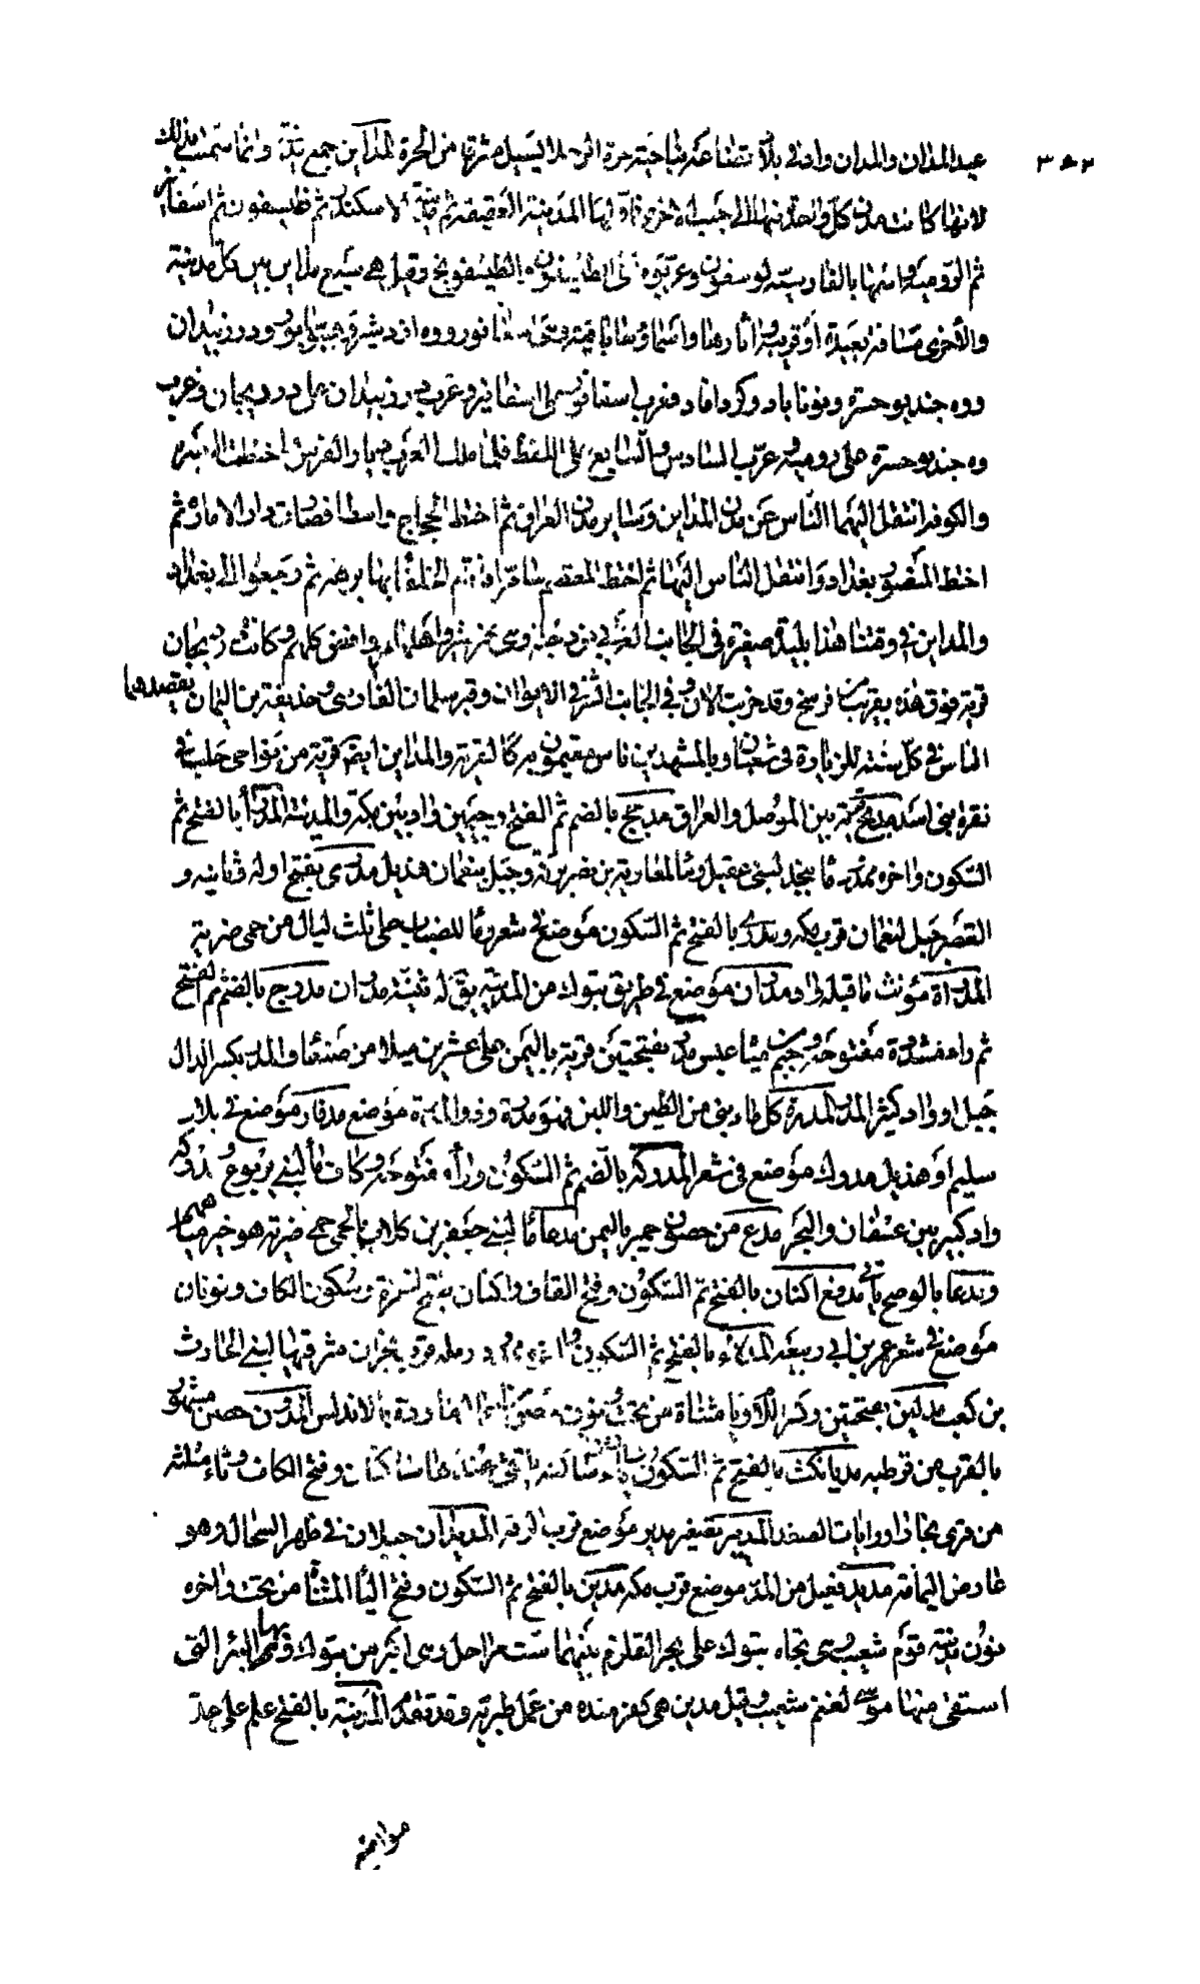 عبد المدان والمدان واد في بلاد قضاعة بناحية حرة الرجلا يسيل مشرقا من الحرة المداين جمع مدينة وانما سميت بذلك
لانها كانت مدنا كل واحدة منها الى جنب الاخرى فاولها المدينة العتيقة ثم مدينة الاسكندر ثم طيسفون ثم اسفانبر
ثم الرومية واسمها بالفارسية توسفون وعربوه على الطيسفون والطيسفونج وقيل هي سبع مداين بين كل مدينة
والاخرى مسافة بعيدة او قريبة واثارها واسماؤها باقية وهى
وه جنديوخسره ونونياباد وكردافاد فعرب اسفانبر على اسفانير وعرب درزنيدان على درزيجان وعرب
وه جنديوخسره على رومية وعرب السادس والسابع على اللفظ فلما ملك العرب ديار الفرس اختطت البصرة
والكوفة انتقل اليهما الناس عن مدن المداين وساير مدن العراق ثم اختط الحجاج واسطا فصارت دار الامارة ثم
اختط المنصور بغداد وانتقل الناس اليها ثم اختط المعتصم سامرا فاقام الخلفا بها برهة ثم رجعوا الى بغداد
والمداين في وقتنا هذا بليدة صغيرة في الجانب الغربي من دجلة وهى نهرشير واهلها روافض كلهم وكانت درزيجان
قرية فوق هذه بقريب من فرسخ وقد خربت الان وفي الجانب الشرقي الايوان وقبر سلمان الفارسى وحذيفة بن اليمان يقصدهما
الناس في كل سنة للزيارة في شعبان وبالمشهدين ناس مقيمون مركالقرية والمداين ايضا قرية من نواحى حلب في
نقرة بنى اسد مدجج بين الموصل والعراق مدجج بالضم ثم الفتح وجيمين واد بين مكة والمدينة المدرا بالفتح ثم
السكون واخره ممدود ما بنجد لبنى عقيل وما لمعاوية بن نصر بركبة وجبل بنعمان هذيل مدرى بفتح اوله وثانيه و
القصر جبل لنعمان قرب مكة ومدرى بالفتح ثم السكون موضع في شعر وما للضباب على ثلث ليال من حمى ضرية
المدراة مؤنث ما قبله واد مدران موضع في طريق تبوك من المدينة يقال له ثنية مدران مدرج بالضم ثم الفتح
ثم راء مشددة مفتوحة وجيم من مياه عبس مدر بفتحتين قرية باليمن على عشرين ميلا من صنعا والمدر بكسر الدال
جبل او واد كثير المدر المدرة كل ما بنى من الطين واللبن فهو مدرة وذو المدرة موضع مدفار موضع في بلاد
سليم او هذيل مدرك موضع في شعر المدركة بالضم ثم السكون وراء مفتوحة وكاف ما لبنى يربوع ومدركه
واد كبير بين عسفان والبحر مدع من حصون حمير باليمن مدعا ما لبنى جعفر بن كلاب بالحمى حمى ضرية هو خير مياههم
ومدعا بالوضح مدفع اكنان بالفتح ثم السكون وفتح القاف واكنان بفتح لهمزة وسكون الكاف ونونان
موضع في شعر عمر بن ابي ربيعة المدلاء بالفتح ثم السكون رملة قرب نجران مشرقيها لبنى الحارث
بن كعب مدلين بفتحتين وكسر اللام ويا مثناة من تحت ونون حصن من اعمال ماردة بالاندلس المدور حصن مشهور
بالقرب من قرطبه مديانكث بالفتح ثم السكون وياء ساكنة يلتقى عندها ساكنان وفتح الكاف وثاء مثلثة
من قرى بخارا ووايات الصغد المديبر تصغير مدبر موضع قرب الرقة المديدان جبلان في ظهر السحال وهو
عارض اليمامة مديد فعيل من المد موضع قرب مكه مدين بالفتح ثم السكون وفتح اليا المثناة من تحت واخره
نون مدينة قوم شعيب وهى تجاه تبوك على بحر القلزم بينهما ست مراحل وهى اكبر من تبوك وبها البئر التى
استقى منها موسى لغنم شعيب وقيل مدين هى كفر منده من عمل طبرية وقد تقدم المدينة بالفتح علم على عدة
مواضع
٣٠٢